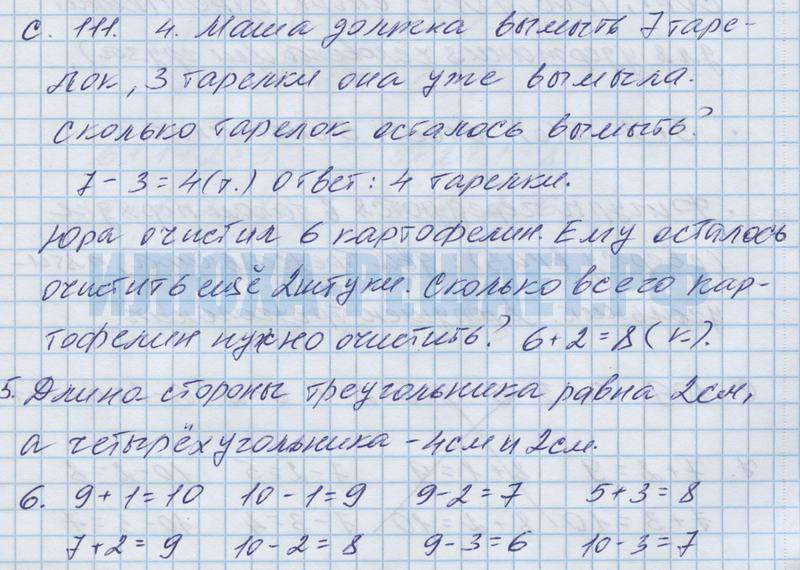 с. 111. 4. Маша должна вымыть 7 таре-
лок, 3 тарелки она уже вымыла.
Сколько тарелок осталось вымыть?
7 - 3 = 4 (т.) Ответ: 4 тарелки.
Юра очистил 6 картофелин. Ему осталось
очистить ещё 2 штуки. Сколько всего кар-
тофелин нужно очистить? 6 + 2 = 8 (к.).
5. Длина стороны треугольника равна 2 см,
а четырёхугольника - 4 см и 2 см.
6. 9 + 1 = 10 10 - 1 = 9 9 - 2 = 7 5 + 3 = 8
7 + 2 = 9 10 - 2 = 8 9 - 3 = 6 10 - 3 = 7